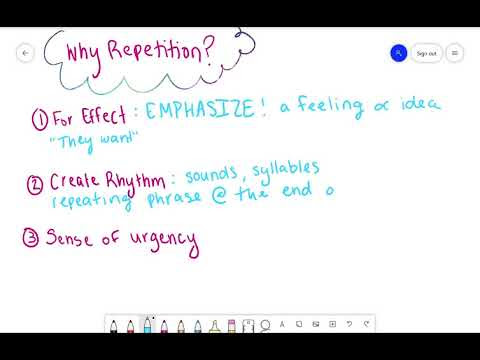 Why Repetition?
Sign out
① For Effect : EMPHASIZE! a feeling or idea
"They want"
② Create Rhythm : sounds, syllables
repeating phrase @ the end o
③ Sense of urgency
A